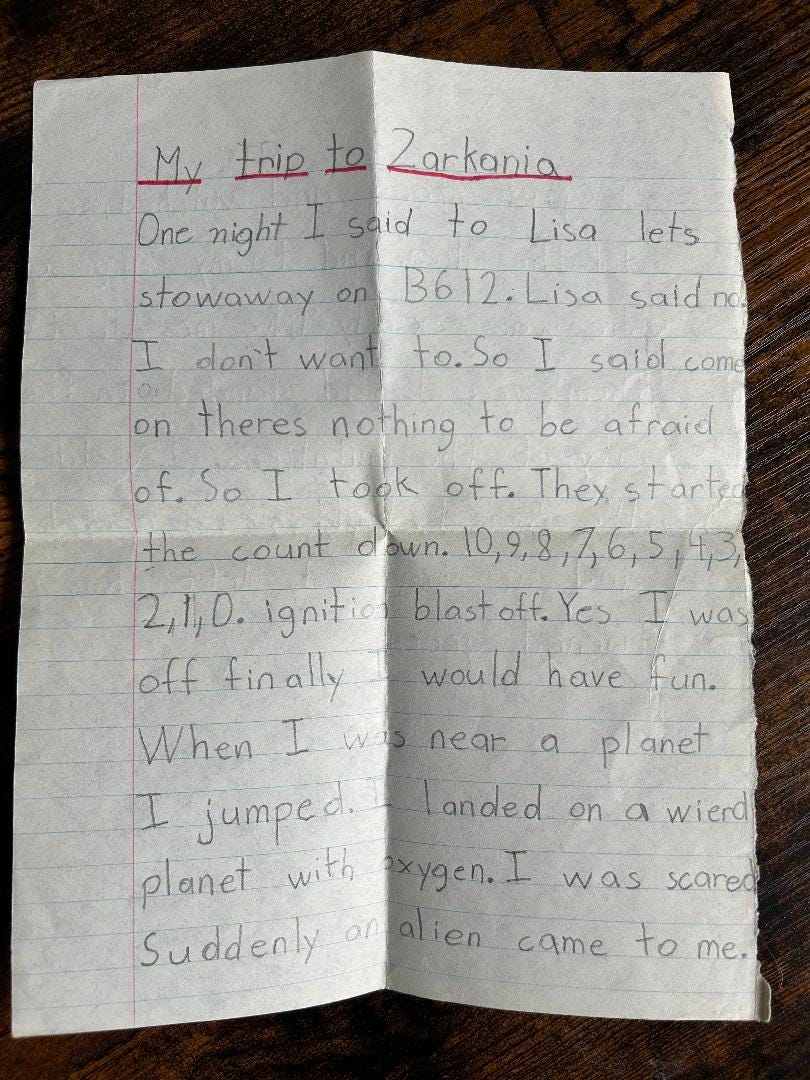 My trip to Zarkania
One night I said to Lisa lets
stowaway on B612. Lisa said no.
I don't want to. So I said come
on theres nothing to be afraid
of. So I took off. They started
the count down. 10,9,8,7,6,5,4,3,
2,1,0. ignition blast off. Yes I was
off finally I would have fun.
When I was near a planet
I jumped. I landed on a wierd
planet with oxygen. I was scared
Suddenly an alien came to me.